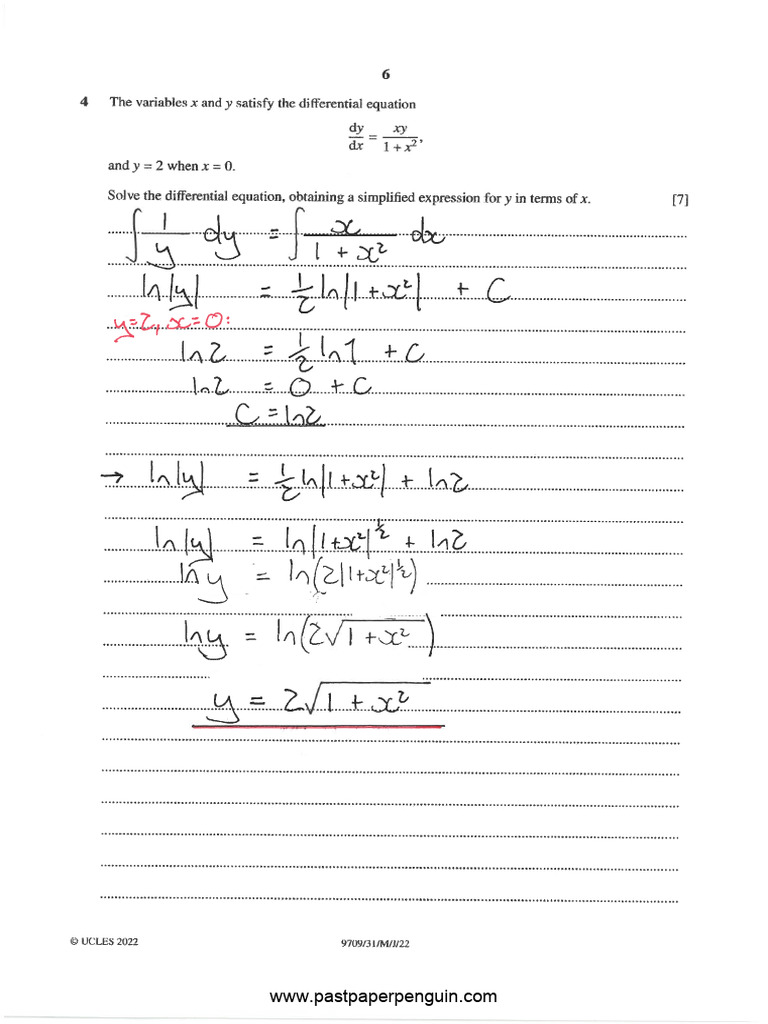 6
4 The variables x and y satisfy the differential equation
dy/dx = xy/(1 + x²),
and y = 2 when x = 0.
Solve the differential equation, obtaining a simplified expression for y in terms of x. [7]
∫ 1/y dy = ∫ x/(1 + x²) dx
ln|y| = ½ ln|1 + x²| + C
y=2, x=0:
ln2 = ½ ln1 + C
ln2 = 0 + C
C = ln2
→ ln|y| = ½ ln|1 + x²| + ln2
ln|y| = ln|1+x²|^½ + ln2
ln y = ln(2|1+x²|^½)
ln y = ln(2√(1 + x²))
y = 2√(1 + x²)
© UCLES 2022 9709/31/M/J/22
www.pastpaperpenguin.com